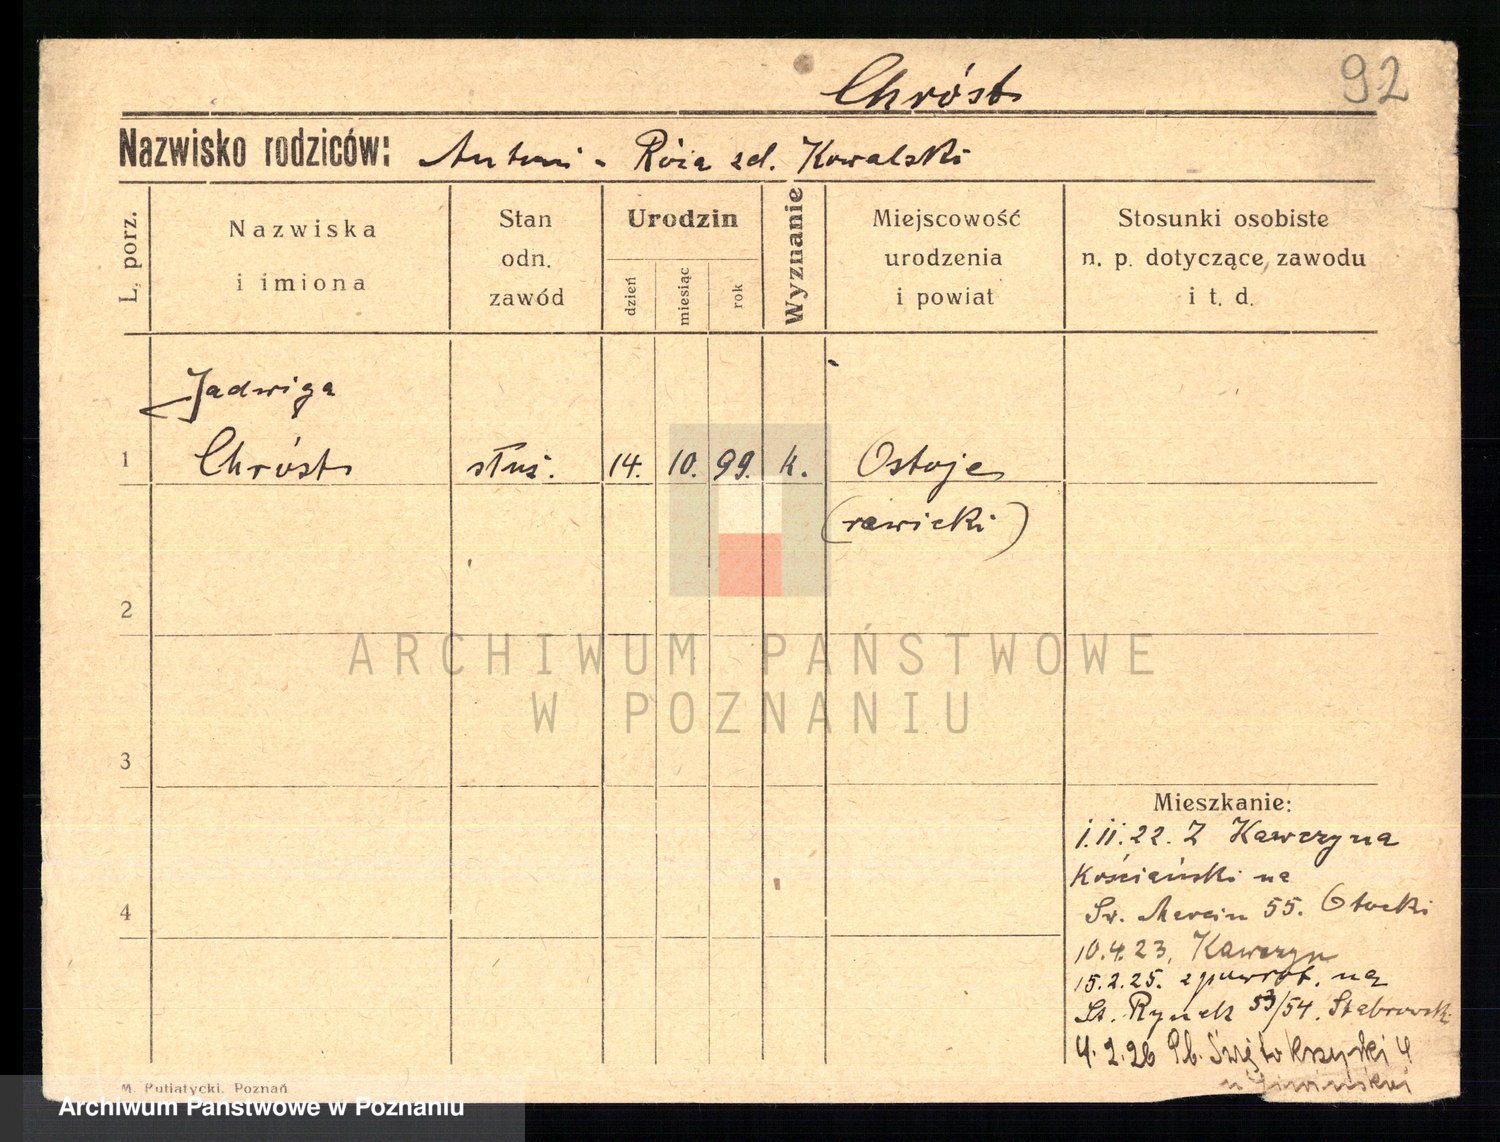 Chróst 92
Nazwisko rodziców: Antoni - Róża zd. Kowalski
L. porz.
Nazwiska
i imiona
Stan
odn.
zawód
Urodzin
dzień
miesiąc
rok
Wyznanie
Miejscowość
urodzenia
i powiat
Stosunki osobiste
n. p. dotyczące zawodu
i t. d.
Jadwiga
1 Chróst służ. 14. 10. 99. k. Ostoje
(rawicki)
2
ARCHIWUM PAŃSTWOWE
W POZNANIU
3
Mieszkanie:
1.11.22. Z Kawczyna
Kościański na
Św. Marcin 55. Otocki
4
10.4.23. Kawczyn
15.2.25. z powrot. na
St. Rynek 53/54.
4.2.26 Pl. Świętokrzyski 4
M. Putiatycki, Poznań
Archiwum Państwowe w Poznaniu